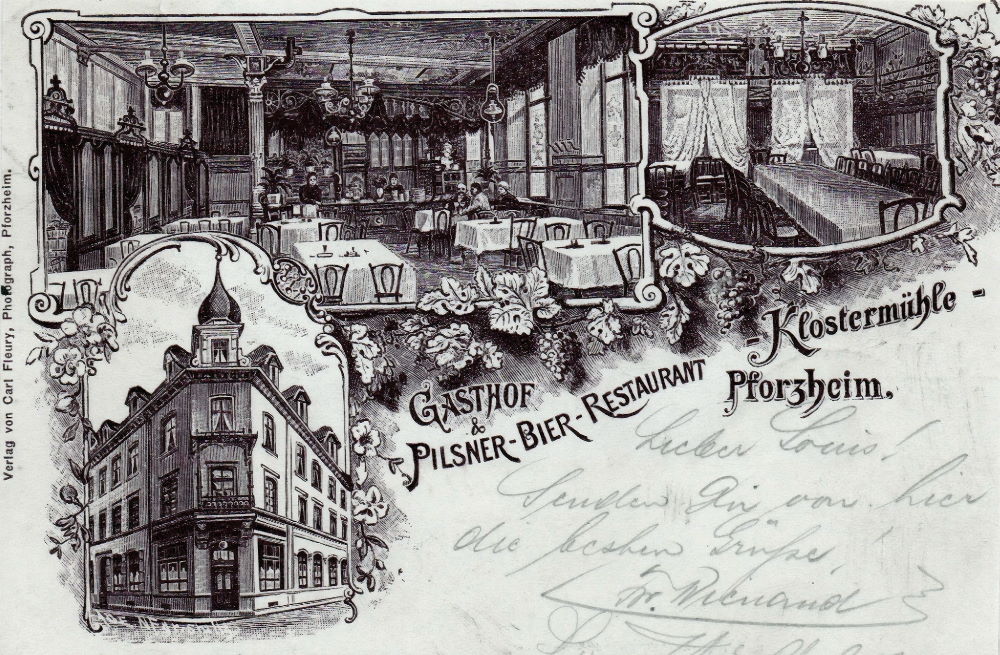 Verlag von Carl Fleury, Photograph, Pforzheim.
GASTHOF
&
PILSNER-BIER-RESTAURANT
- Klostermühle -
Pforzheim.
Lieber Louis.
Senden Dir von hier
die besten Grüße,
Fr. Wienand